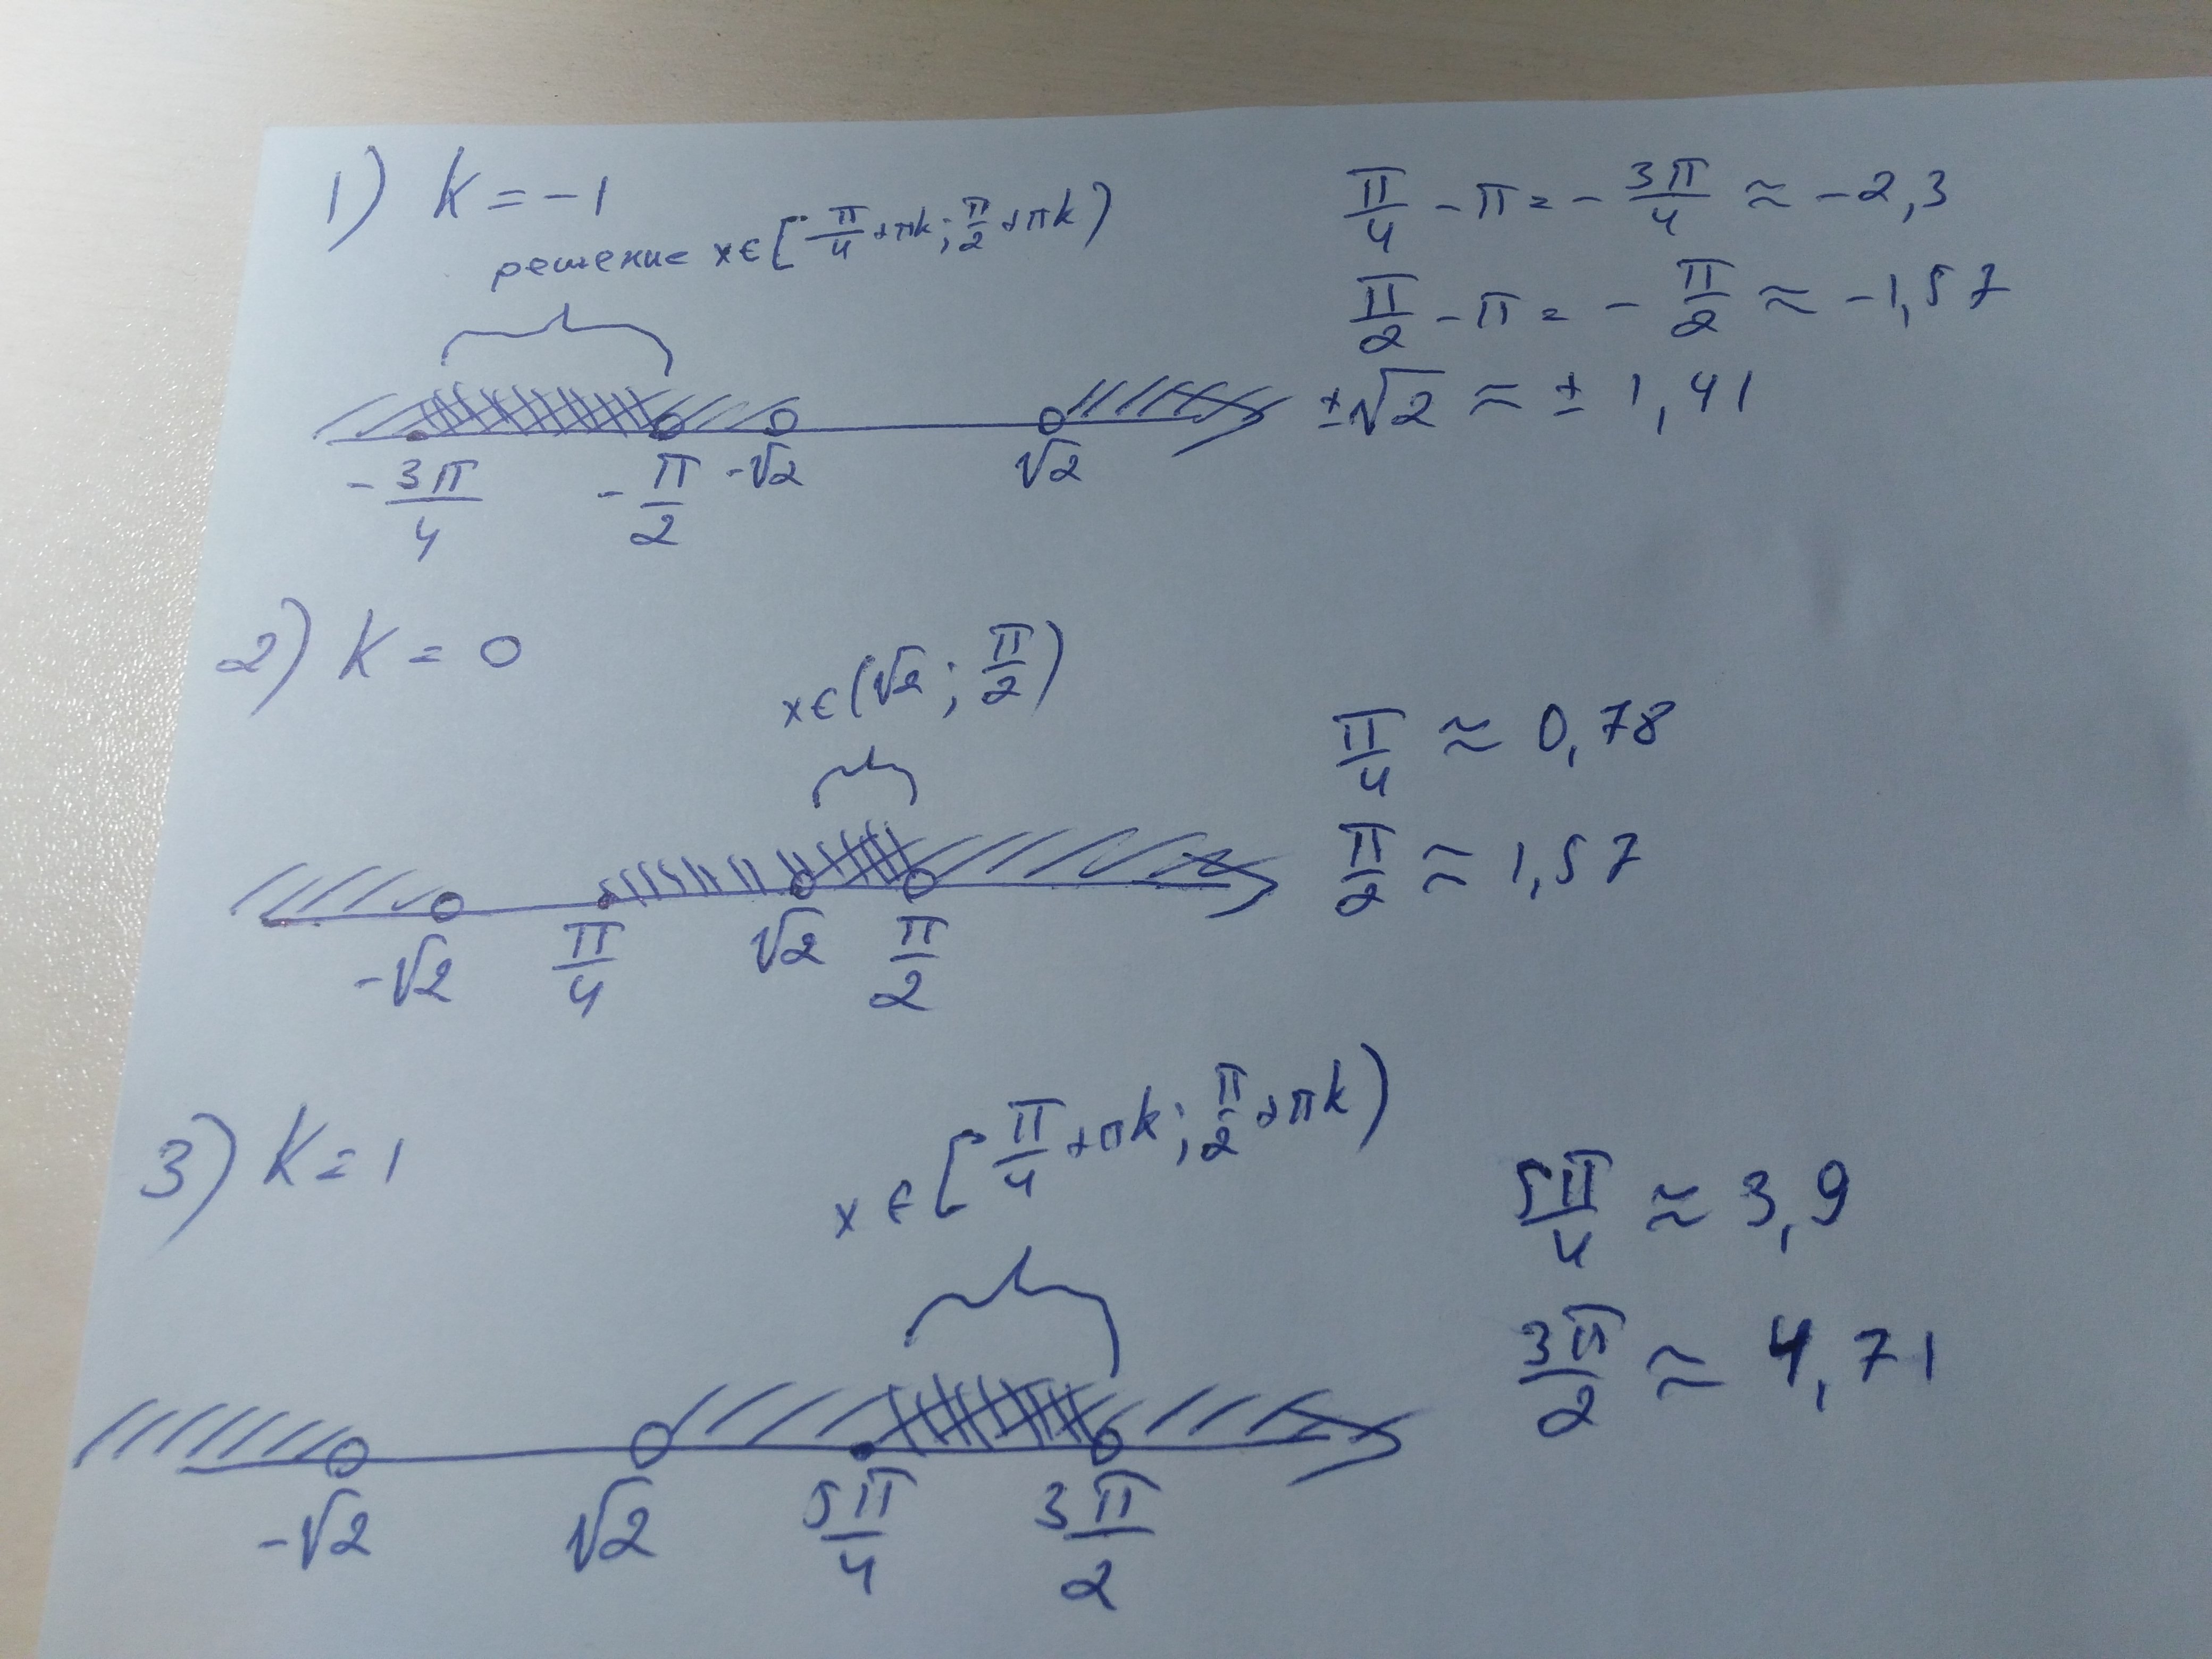 1) k = -1
решение x ∈ [π/4 + πk; π/2 + πk)
π/4 - π = - 3π/4 ≈ -2,3
π/2 - π = - π/2 ≈ -1,57
±√2 ≈ ± 1,41
- 3π/4   - π/2   -√2   √2
2) k = 0
x ∈ (√2; π/2)
π/4 ≈ 0,78
π/2 ≈ 1,57
-√2   π/4   √2   π/2
3) k = 1
x ∈ [π/4 + πk; π/2 + πk)
5π/4 ≈ 3,9
3π/2 ≈ 4,71
-√2   √2   5π/4   3π/2